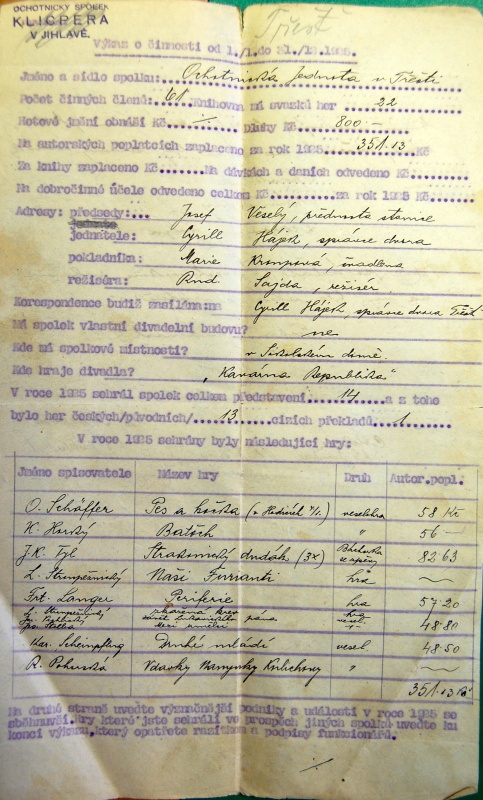 OCHOTNICKÝ SPOLEK
KLICPERA
V JIHLAVĚ.
Třešť
Výkaz o činnosti od 1./1.do 31./12.1925.
Jméno a sídlo spolku: Ochotnická Jednota v Třešti
Počet činných členů: 61 Knihovna má svazků her 22
Hotové jmění obnáší Kč Dluhy Kč 800 -
Na autorských poplatcích zaplaceno za rok 1925 351.13 Kč
Za knihy zaplaceno Kč Na dávkách a daních odvedeno Kč
Na dobročinné účele odvedeno celkem Kč za rok 1925 Kč
Adresy: předsedy: Josef Veselý, přednosta stanice
jednatele: Cyrill Hájek, správce dvora
pokladníka: Marie
režiséra: Rud. Sajda, režisér
Korespondence budiž zasílána: na Cyrill Hájek správce dvora Třešť
Má spolek vlastní divadelní budovu? ne
Kde má spolkové místnosti? v Sokolském domě.
Kde hraje divadla? "Kavárna Republika"
V roce 1925 sehrál spolek celkem představení 14 a z toho
bylo her českých/původních/ 13 cizích překladů 1
V roce 1925 sehrány byly následující hry:
Jméno spisovatele Název hry Druh Autor.popl.
O. Schäffer Pes a kočka veselohra 58 Kč
K. Horský Batoh " 56 -
J.K. Tyl Strakonický dudák (3x) Báchorka se zpěvy 82 63
L. Stroupežnický Naši Furianti hra
Frt. Langer Periferie hra 57.20
L. Stroupežnický Zkažená krev hra
pána vesel. 48.80
Kar. Scheinpflug Druhé mládí vesel. 48.50
R. Vdavky Nanynky Kulichovy "
351.13 Kč
Na druhé straně uveďte význačnější podniky a události v roce 1925 se
sběhnuvší. Hry které jste sehráli ve prospěch jiných spolků uveďte ku
konci výkazu, který opatřete razítkem a podpisy funkcionářů.